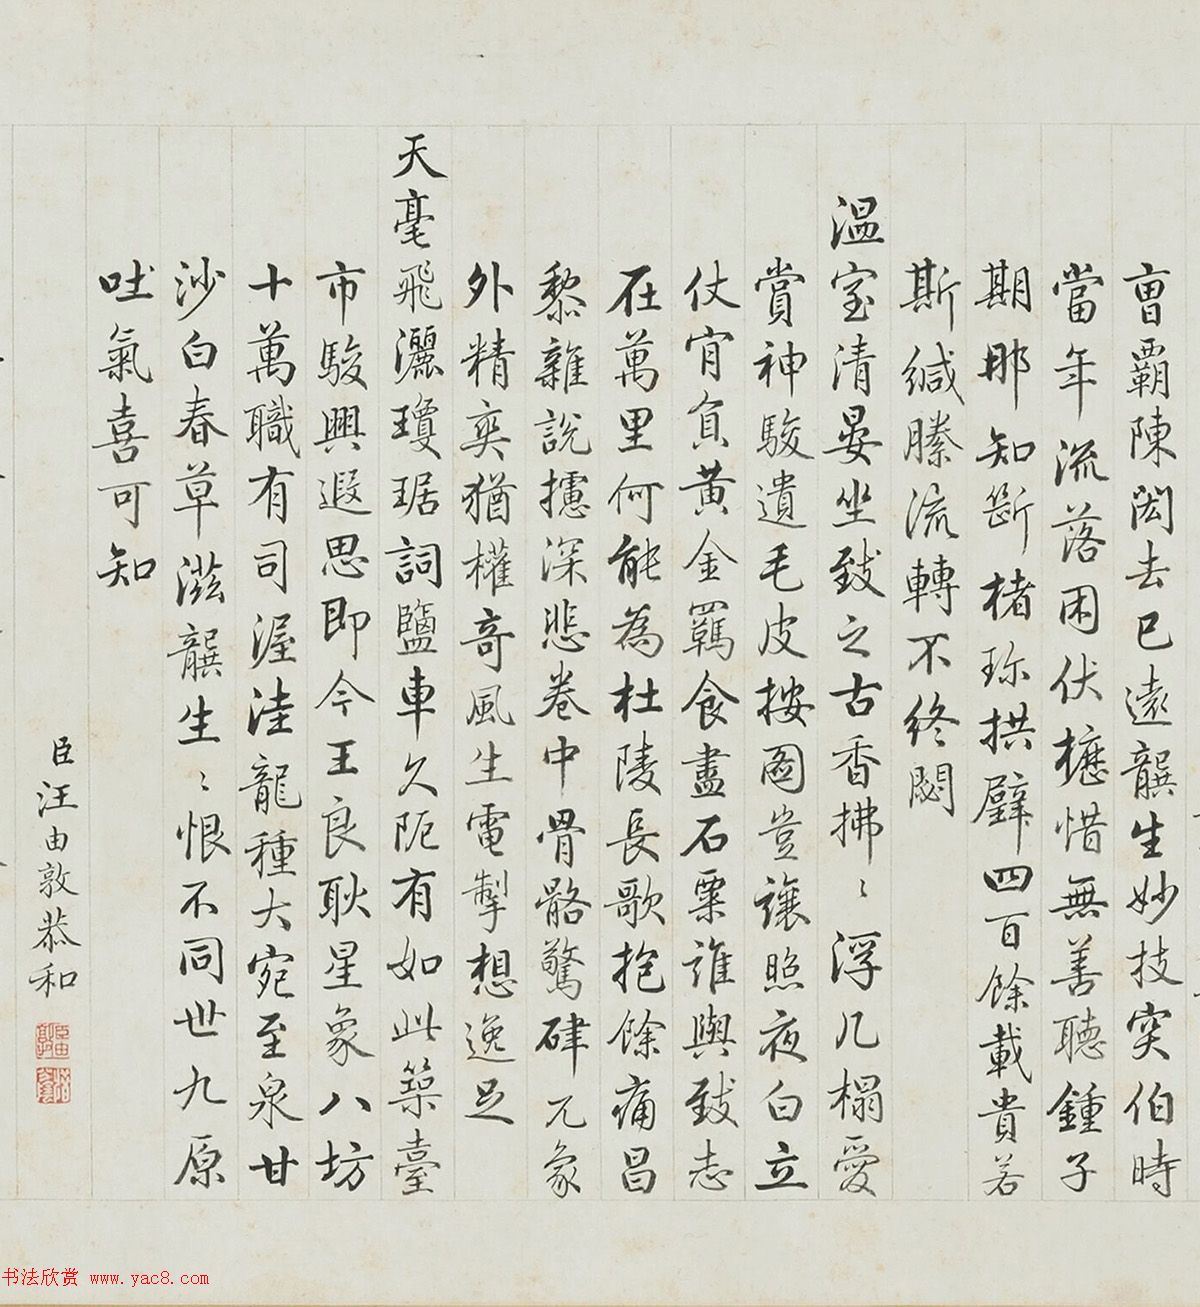 曹霸陳閎去已遠龔生妙技突伯時
當年流落困伏櫪惜無善聽鍾子
期那知斷楮珍拱璧四百餘載貴若
斯緘縢流轉不終閟
溫室清晏坐致之古香拂〻浮几榻愛
賞神駿遺毛皮按圖豈讓照夜白立
仗肯負黃金羈食盡石粟誰與致志
在萬里何能為杜陵長歌抱餘痛昌
黎雜說攄深悲卷中骨骼驚硉兀象
外精爽猶權奇風生電掣想逸足
天毫飛灑瓊琚詞鹽車久阨有如此築臺
市駿興遐思即今王良耿星象八坊
十萬職有司渥洼龍種大宛至泉甘
沙白春草滋龔生〻恨不同世九原
吐氣喜可知
臣汪由敦恭和
书法欣赏 www.yac8.com